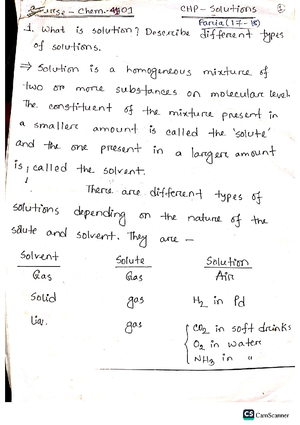 Course - Chem - 4501 CHP - Solutions
Faria (17-18)
1. What is solution? Describe different types
of solutions.
⇒ Solution is a homogeneous mixture of
two or more substances on molecular level.
The constituent of the mixture present in
a smaller amount is called the 'solute'
and the one present in a larger amount
is, called the solvent.
There are different types of
solutions depending on the nature of the
solute and solvent. They are —
Solvent Solute Solution
Gas Gas Air
Solid gas H2 in Pd
Liq. gas { CO2 in soft drinks
O2 in water
NH3 in "
CS CamScanner